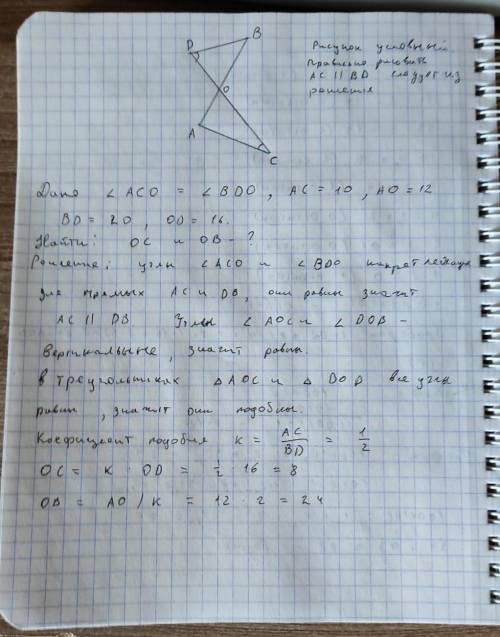 B
D
O
A
C
Рисунок условный
правильно рисовать
AC || BD следует из
решения
Дано ∠ACO = ∠BDO, AC = 10, AO = 12
BD = 20, OD = 16.
Найти: OC и OB - ?
Решение: углы ∠ACO и ∠BDO накрет лежащие
для прямых AC и DB, они равны значит
AC || DB. Углы ∠AOC и ∠DOB -
вертикальные, значит равны.
В треугольниках △AOC и △DOD все углы
равны, значит они подобны.
Коефициент подобия K = AC/BD = 1/2
OC = K · OD = 1/2 · 16 = 8
OB = AO / K = 12 · 2 = 24